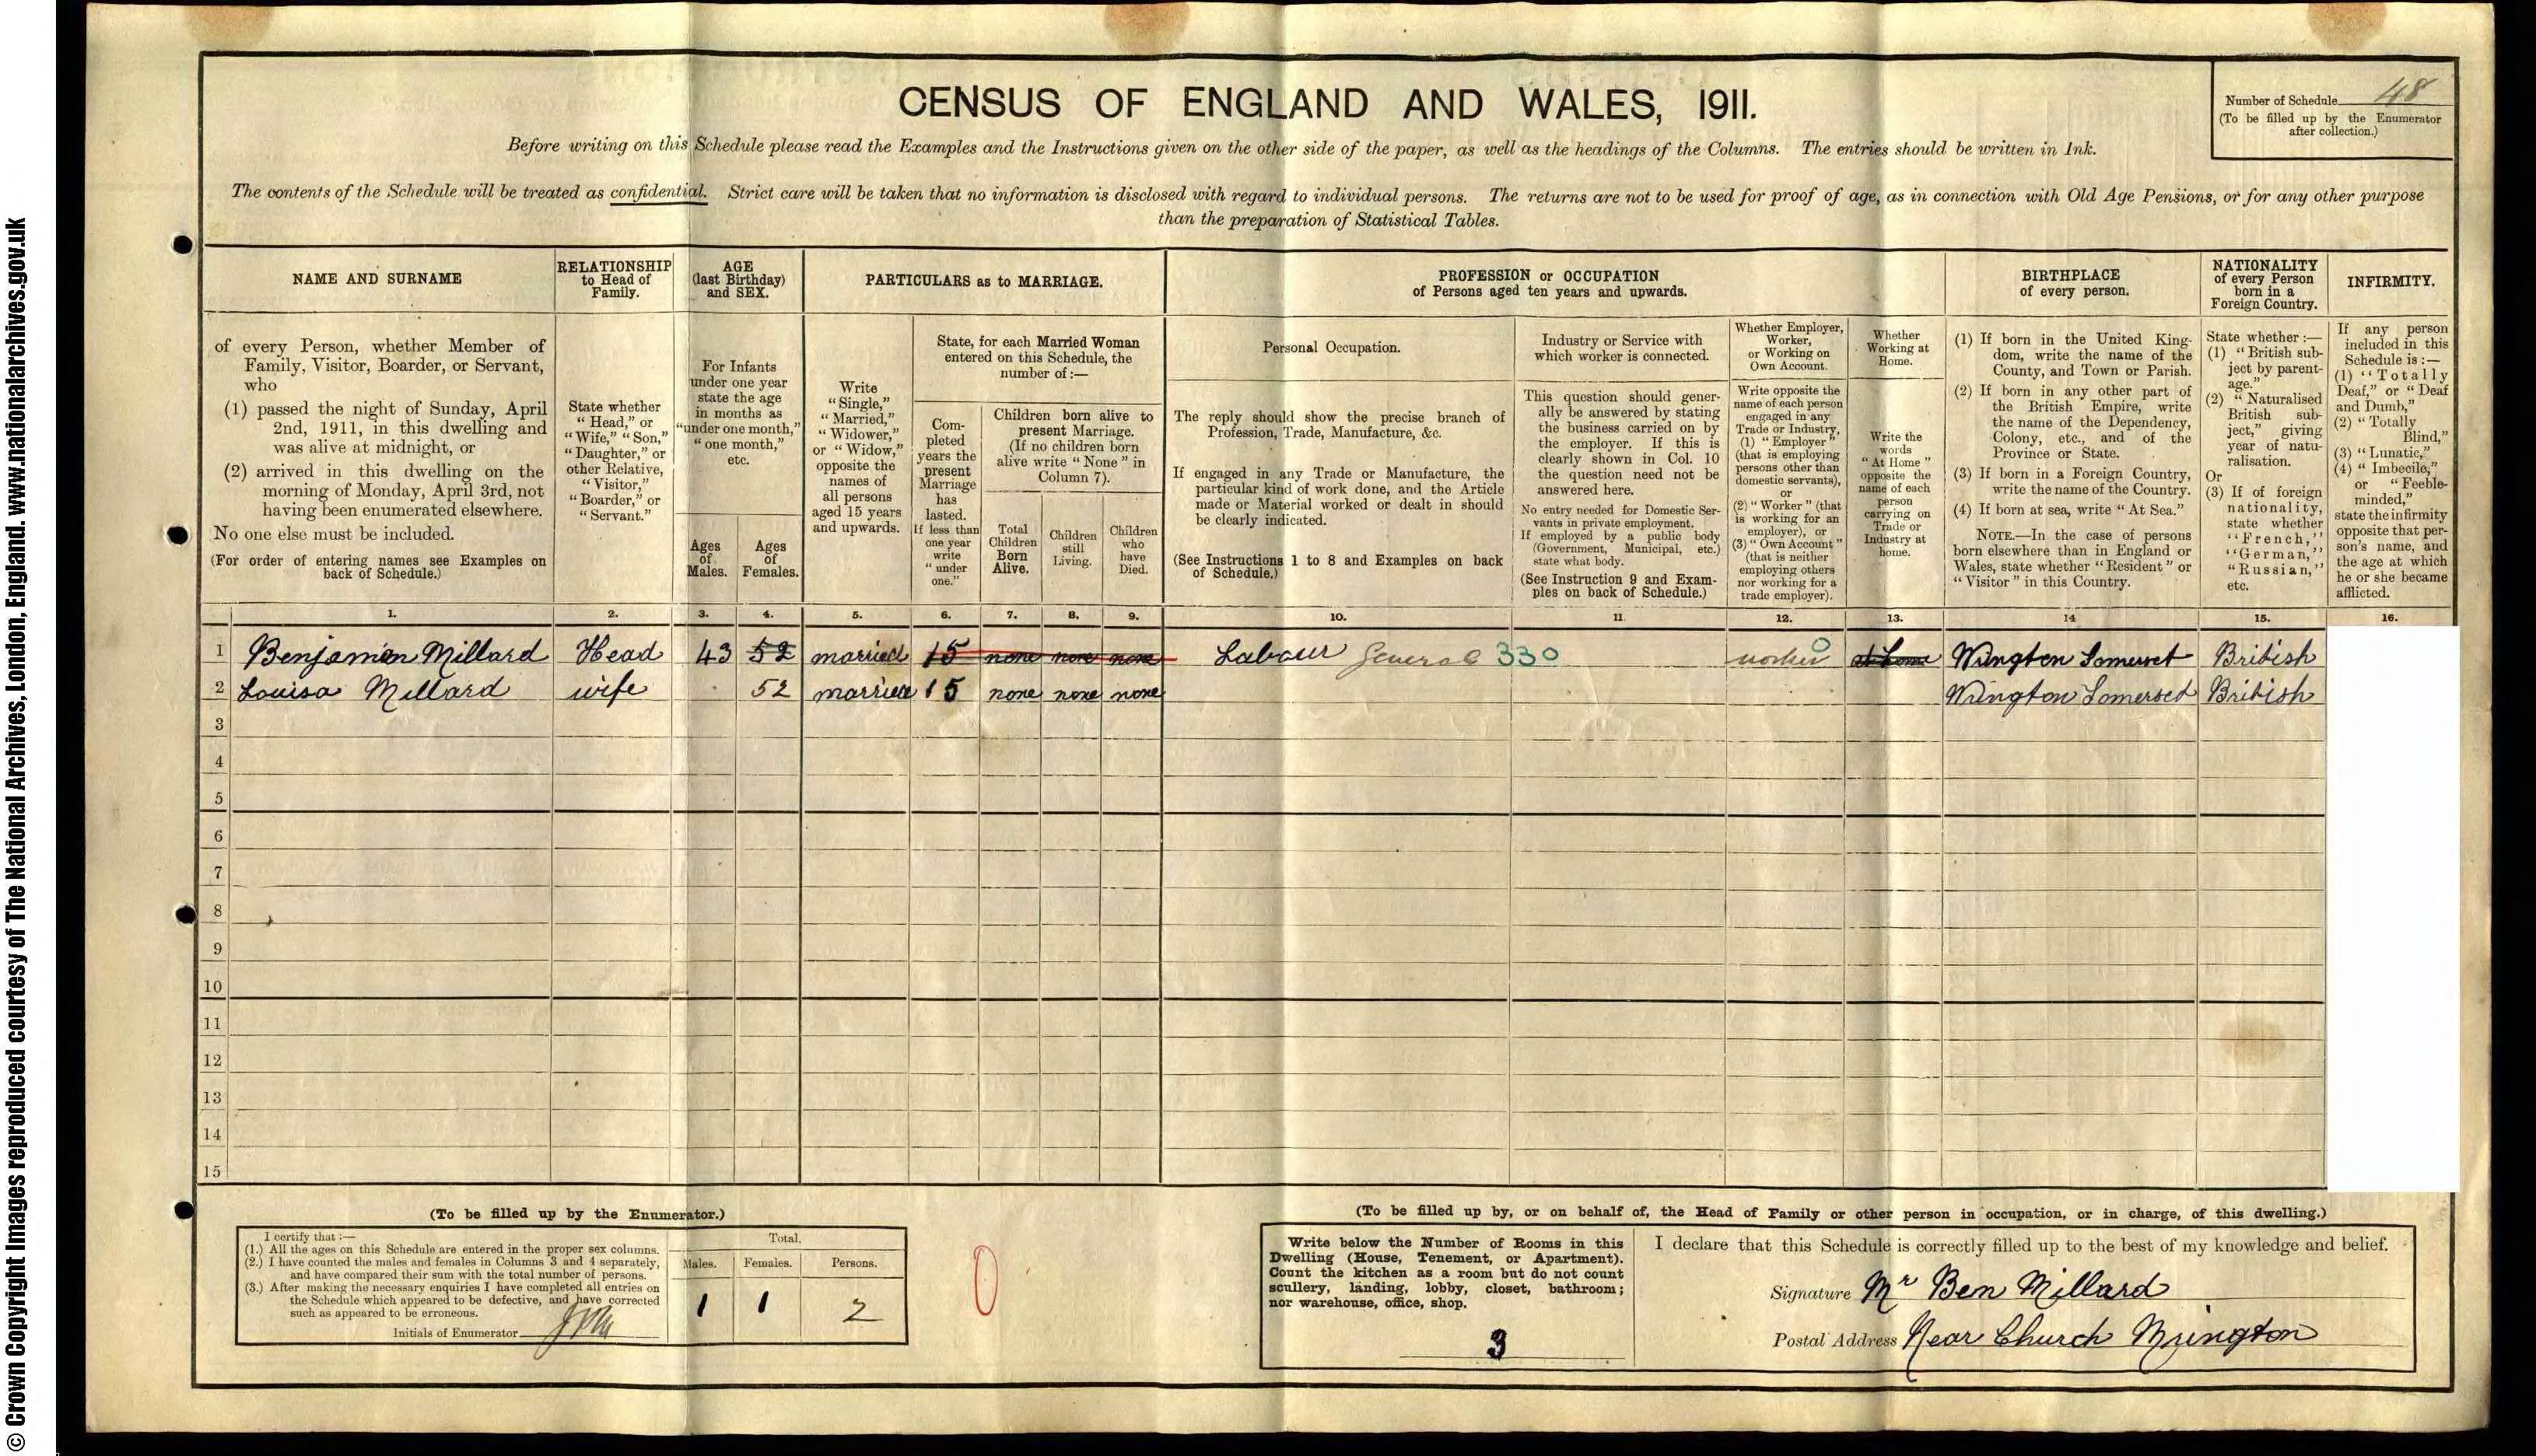 © Crown Copyright Images reproduced courtesy of The National Archives, London, England. www.nationalarchives.gov.uk
CENSUS OF ENGLAND AND WALES, 1911.
Number of Schedule 48
(To be filled up by the Enumerator
after collection.)
Before writing on this Schedule please read the Examples and the Instructions given on the other side of the paper, as well as the headings of the Columns. The entries should be written in Ink.
The contents of the Schedule will be treated as confidential. Strict care will be taken that no information is disclosed with regard to individual persons. The returns are not to be used for proof of age, as in connection with Old Age Pensions, or for any other purpose
than the preparation of Statistical Tables.
NAME AND SURNAME
of every Person, whether Member of
Family, Visitor, Boarder, or Servant,
who
(1) passed the night of Sunday, April
2nd, 1911, in this dwelling and
was alive at midnight, or
(2) arrived in this dwelling on the
morning of Monday, April 3rd, not
having been enumerated elsewhere.
No one else must be included.
(For order of entering names see Examples on
back of Schedule.)
RELATIONSHIP
to Head of
Family.
State whether
"Head," or
"Wife," "Son,"
"Daughter," or
other Relative,
"Visitor,"
"Boarder," or
"Servant."
AGE
(last Birthday)
and SEX.
For Infants
under one year
state the age
in months as
"under one month,"
"one month,"
etc.
Ages
of
Males.
Ages
of
Females.
PARTICULARS as to MARRIAGE.
Write
"Single,"
"Married,"
"Widower,"
or "Widow,"
opposite the
names of
all persons
aged 15 years
and upwards.
State, for each Married Woman
entered on this Schedule, the
number of :—
Com-
pleted
years the
present
Marriage
has
lasted.
If less than
one year
write
"under
one."
Children born alive to
present Marriage.
(If no children born
alive write "None" in
Column 7).
Total
Children
Born
Alive.
Children
still
Living.
Children
who
have
Died.
PROFESSION or OCCUPATION
of Persons aged ten years and upwards.
Personal Occupation.
The reply should show the precise branch of
Profession, Trade, Manufacture, &c.
If engaged in any Trade or Manufacture, the
particular kind of work done, and the Article
made or Material worked or dealt in should
be clearly indicated.
(See Instructions 1 to 8 and Examples on back
of Schedule.)
Industry or Service with
which worker is connected.
This question should gener-
ally be answered by stating
the business carried on by
the employer. If this is
clearly shown in Col. 10
the question need not be
answered here.
No entry needed for Domestic Ser-
vants in private employment.
If employed by a public body
(Government, Municipal, etc.)
state what body.
(See Instruction 9 and Exam-
ples on back of Schedule.)
Whether Employer,
Worker,
or Working on
Own Account.
Write opposite the
name of each person
engaged in any
Trade or Industry,
(1) "Employer"
(that is employing
persons other than
domestic servants),
or
(2) "Worker" (that
is working for an
employer), or
(3) "Own Account"
(that is neither
employing others
nor working for a
trade employer).
Whether
Working at
Home.
Write the
words
"At Home"
opposite the
name of each
person
carrying on
Trade or
Industry at
home.
BIRTHPLACE
of every person.
(1) If born in the United King-
dom, write the name of the
County, and Town or Parish.
(2) If born in any other part of
the British Empire, write
the name of the Dependency,
Colony, etc., and of the
Province or State.
(3) If born in a Foreign Country,
write the name of the Country.
(4) If born at sea, write "At Sea."
NOTE.—In the case of persons
born elsewhere than in England or
Wales, state whether "Resident" or
"Visitor" in this Country.
NATIONALITY
of every Person
born in a
Foreign Country.
State whether :—
(1) "British sub-
ject by parent-
age."
(2) "Naturalised
British sub-
ject," giving
year of natu-
ralisation.
Or
(3) If of foreign
nationality,
state whether
"French,"
"German,"
"Russian,"
etc.
INFIRMITY.
If any person
included in this
Schedule is :—
(1) "Totally
Deaf," or "Deaf
and Dumb,"
(2) "Totally
Blind,"
(3) "Lunatic,"
(4) "Imbecile,"
or "Feeble-
minded,"
state the infirmity
opposite that per-
son's name, and
the age at which
he or she became
afflicted.
1. 2. 3. 4. 5. 6. 7. 8. 9. 10. 11 12. 13. 14 15. 16.
1 Benjamin Millard Head 43 52 married 15 none none none Labour General 330 worker 0 at home Wrington Somerset British
2 Louisa Millard wife 52 married 15 none none none Wrington Somerset British
3
4
5
6
7
8
9
10
11
12
13
14
15
(To be filled up by the Enumerator.)
I certify that :—
(1.) All the ages on this Schedule are entered in the proper sex columns.
(2.) I have counted the males and females in Columns 3 and 4 separately,
and have compared their sum with the total number of persons.
(3.) After making the necessary enquiries I have completed all entries on
the Schedule which appeared to be defective, and have corrected
such as appeared to be erroneous.
Initials of Enumerator
Total.
Males. Females. Persons.
1 1 2
0
(To be filled up by, or on behalf of, the Head of Family or other person in occupation, or in charge, of this dwelling.)
Write below the Number of Rooms in this
Dwelling (House, Tenement, or Apartment).
Count the kitchen as a room but do not count
scullery, landing, lobby, closet, bathroom;
nor warehouse, office, shop.
3
I declare that this Schedule is correctly filled up to the best of my knowledge and belief.
Signature Mr Ben Millard
Postal Address Near Church Wrington